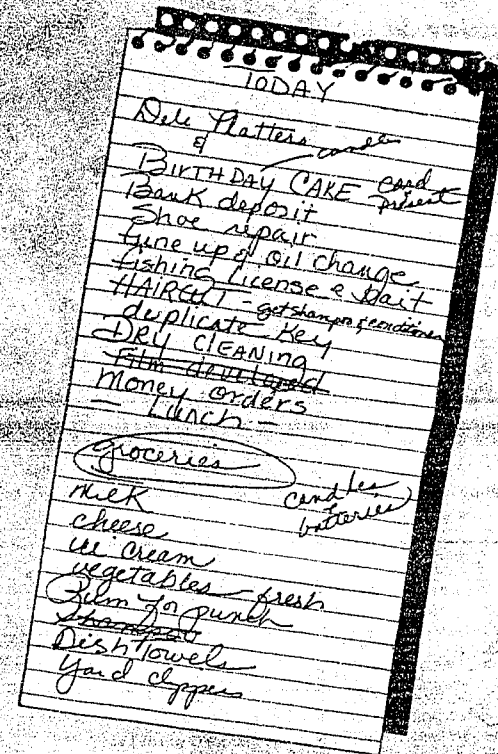 TODAY
Deli Platters
& candles
BIRTHDAY CAKE card
present
Bank deposit
Shoe repair
tune up & oil change
fishing license & bait
HAIRCUT - get shampoo & conditioner
duplicate key
DRY CLEANING
Film developed
Money orders
- Lunch -
groceries
milk
cheese
ice cream
vegetables - fresh
Rum for punch
Shampoo
Dish Towels
Yard clippers
candles,
&
batteries